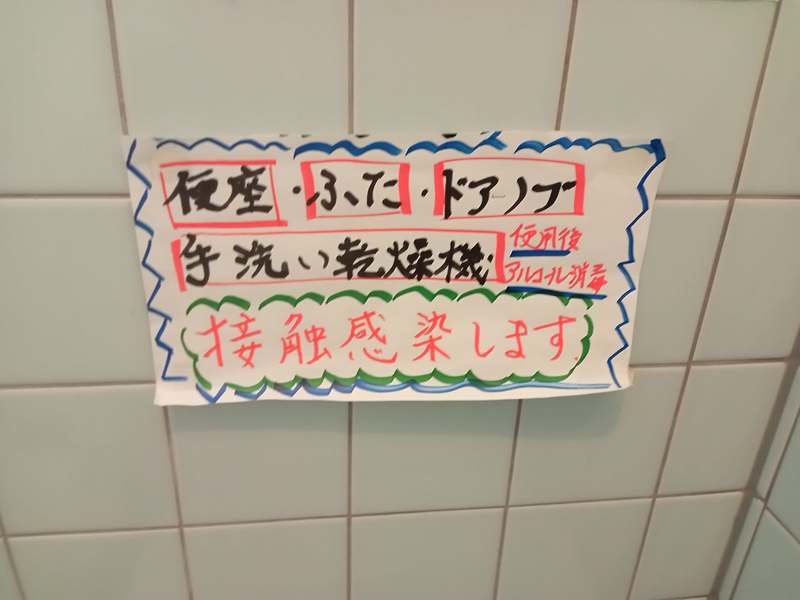 便座・ふた・ドアノブ
手洗い乾燥機
使用後
アルコール消毒
接触感染します